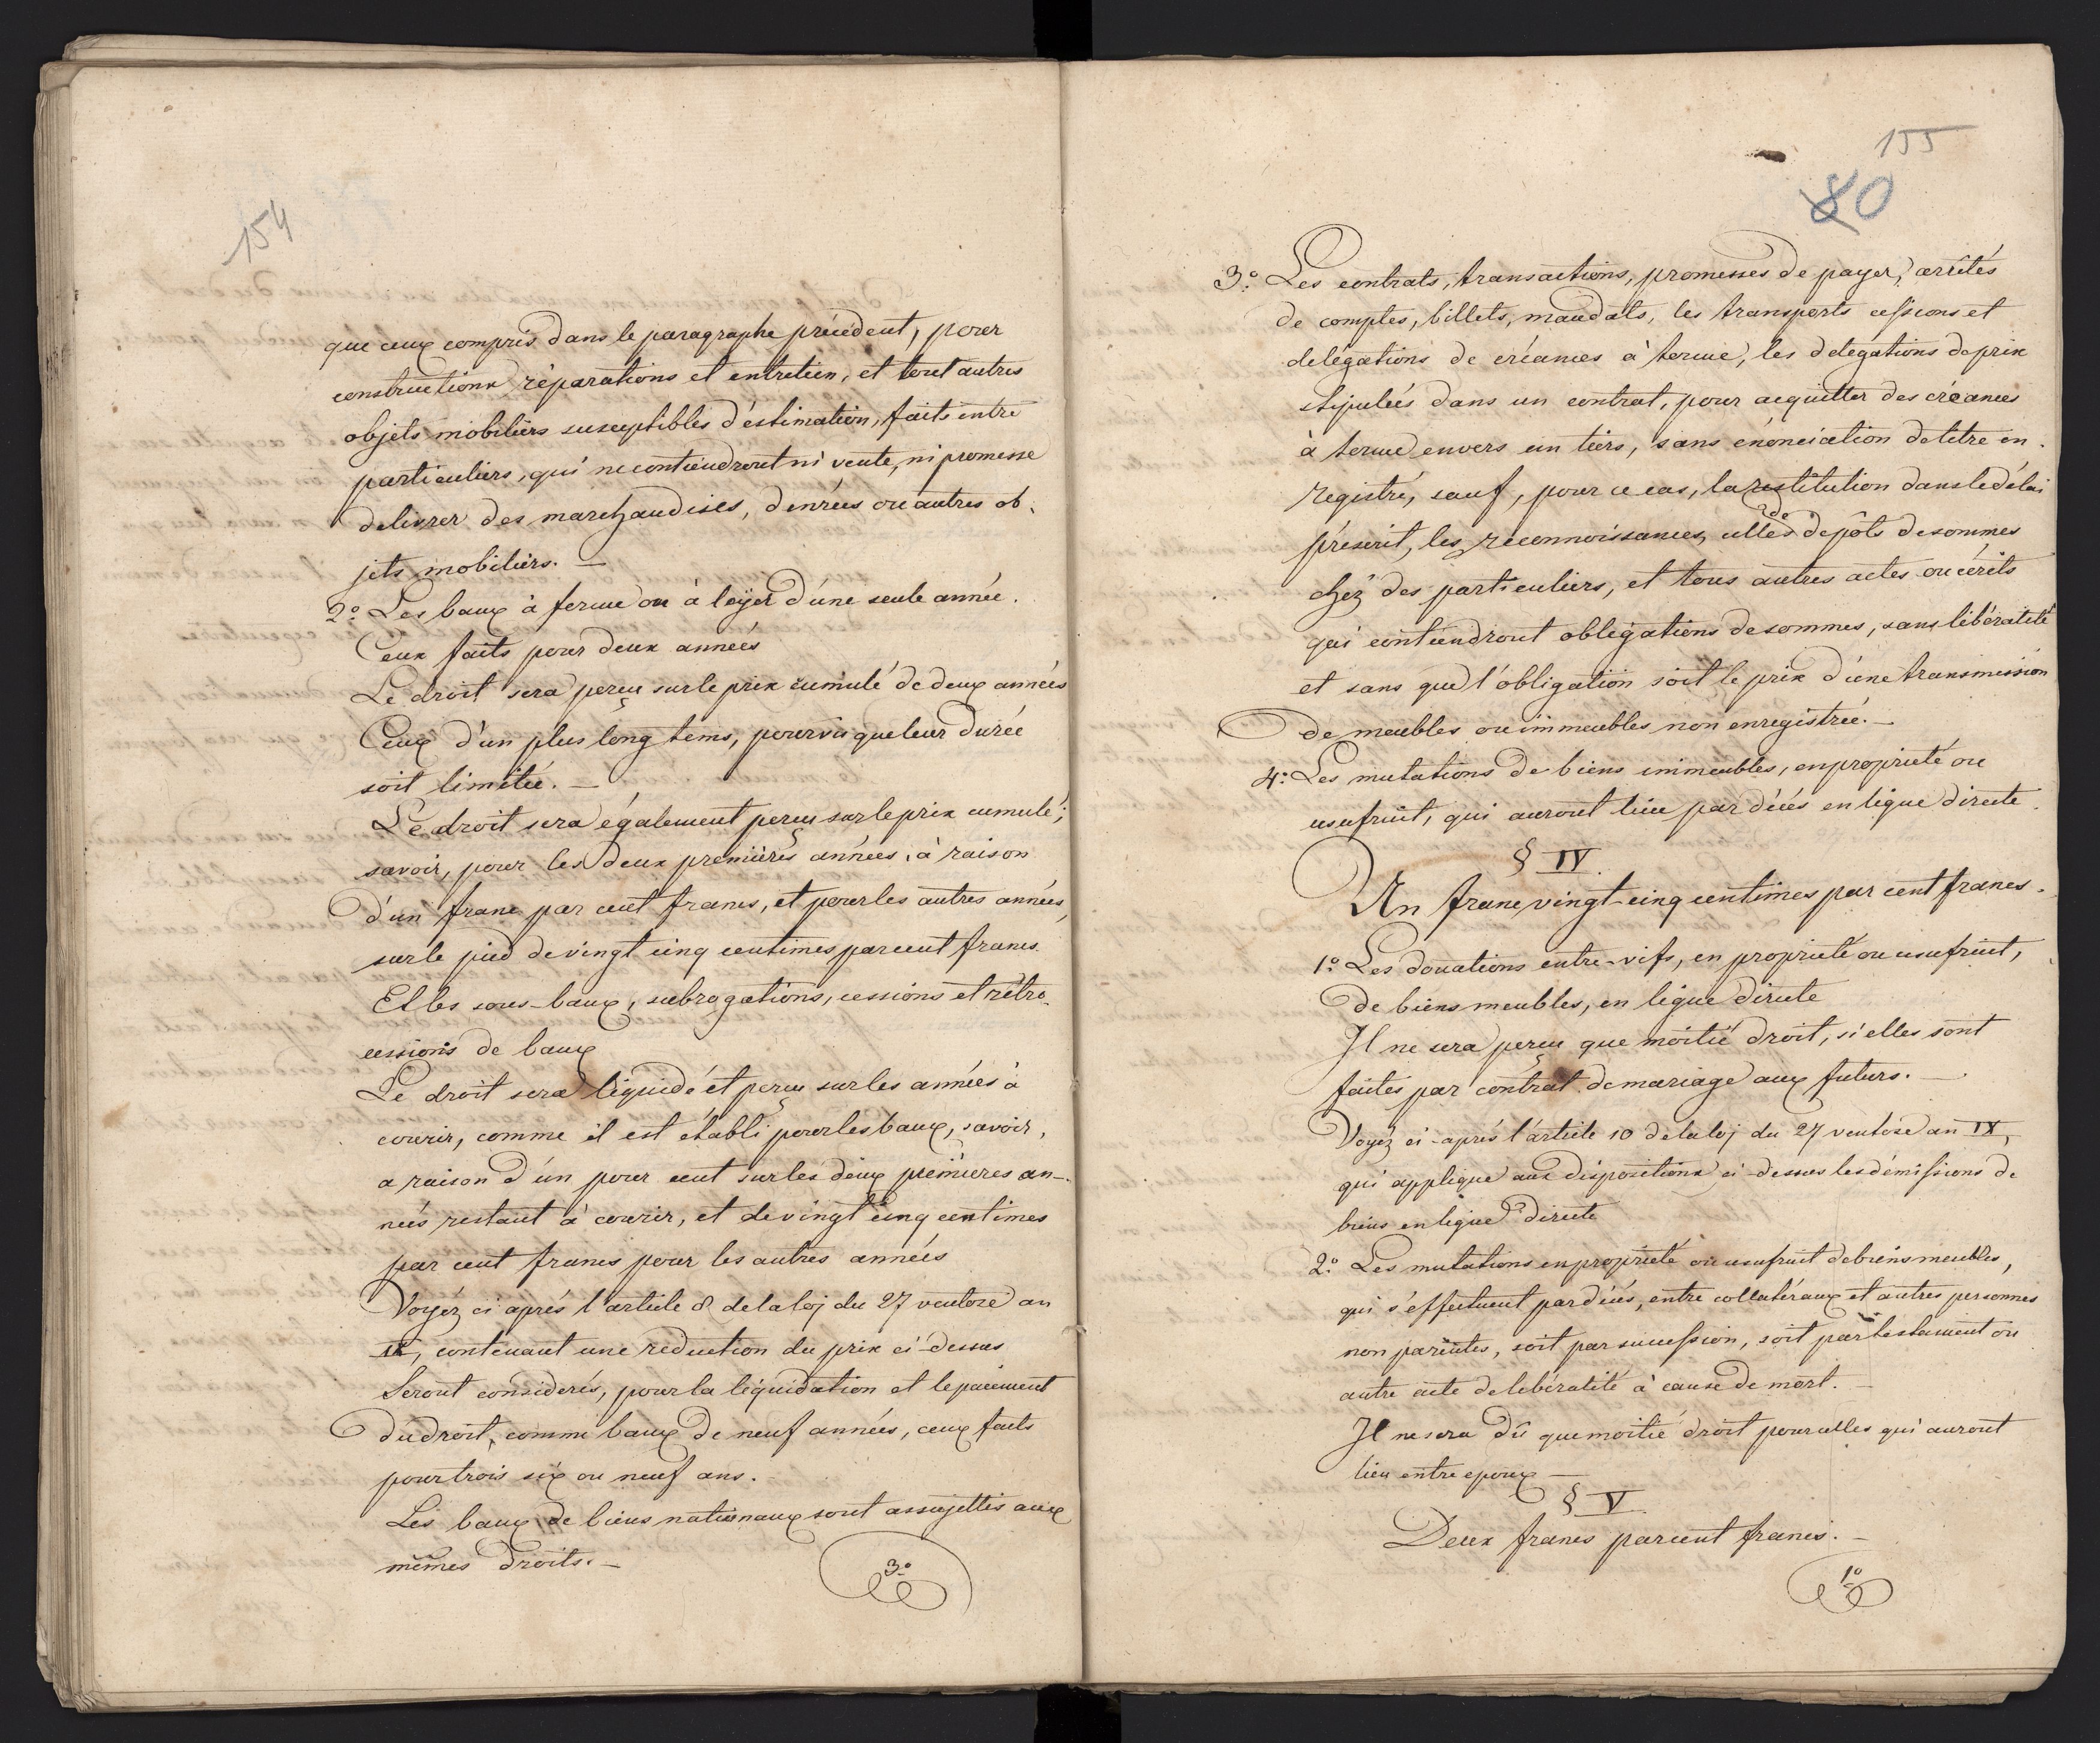 154
que ceux compris dans le paragraphe précédent, pour
constructions réparations et entretien, et tout autres
objets mobiliers susceptibles d'estimation, faits entre
particuliers, qui ne contiendront ni vente, ni promesse
de livrer des marchandises, denrées ou autres ob-
jets mobiliers. —
2.° Les baux à ferme ou à loyer d'une seule année.
Ceux faits pour deux années
Le droit sera perçu sur le prix cumulé de deux années
Ceux d'un plus long tems, pourvu que leur durée
soit limitée. —
Le droit sera également perçu sur le prix cumulé;
savoir, pour les deux premières années, à raison
d'un franc par cent francs, et pour les autres années,
sur le pied de vingt cinq centimes par cent francs.
Et les sous-baux, subrogations, cessions et rétro-
cessions de baux
Le droit sera liquidé et perçu sur les années à
courir, comme il est établi pour les baux, savoir,
a raison d'un pour cent sur les deux premières an-
nées restant à courir, et de vingt cinq centimes
par cent francs pour les autres années
Voyéz ci après l'article 8 de la loj du 27 ventose an
IX, contenant une réduction du prix ci-dessus
Seront considerés, pour la liquidation et le paiement
du droit, comme baux de neuf années, ceux faits
pour trois six ou neuf ans.
Les baux de biens nationaux sont assujettis aux
mêmes droits. —
3.°
155
80
3.° Les contrats, transactions, promesses de payer, arrêtés
de comptes, billets, mandats, les transports cessions et
delégations de créances à terme, les delegations de prix
stipulées dans un contrat, pour acquitter des créances
à terme envers un tiers, sans énonciation de titre en-
registré, sauf, pour ce cas, la restitution dans le délai
préscrit, les reconnoissances, celles de depôts de sommes
chéz des particuliers, et tous autres actes ou écrits
qui contiendront obligations de sommes, sans libéralité
et sans que l'obligation soit le prix d'une transmission
de meubles ou immeubles non enregistrée. —
4.° Les mutations de biens immeubles, en propriété ou
usufruit, qui auront lieu par décés en ligne directe.
§ IV.
Un franc vingt-cinq centimes par cent francs.
1.° Les donations entre-vifs, en propriété ou usufruit,
de biens meubles, en ligne directe
Il ne sera perçu que moitié droit, si elles sont
faites par contrat de mariage aux futurs. —
Voyéz ci-aprés l'article 10 de la loj du 27 ventose an IX,
qui applique aux dispositions ci-dessus les démissions de
biens en ligne directe
2.° Les mutations en propriété ou usufruit de biens meubles,
qui s'effectuent par décés, entre collatéraux et autres personnes
non parentes, soit par succession, soit par testament ou
autre acte de libéralité à cause de mort. —
Il ne sera dû que moitié droit pour celles qui auront
lieu entre epoux —
§ V.
Deux francs par cent francs. —
1.°